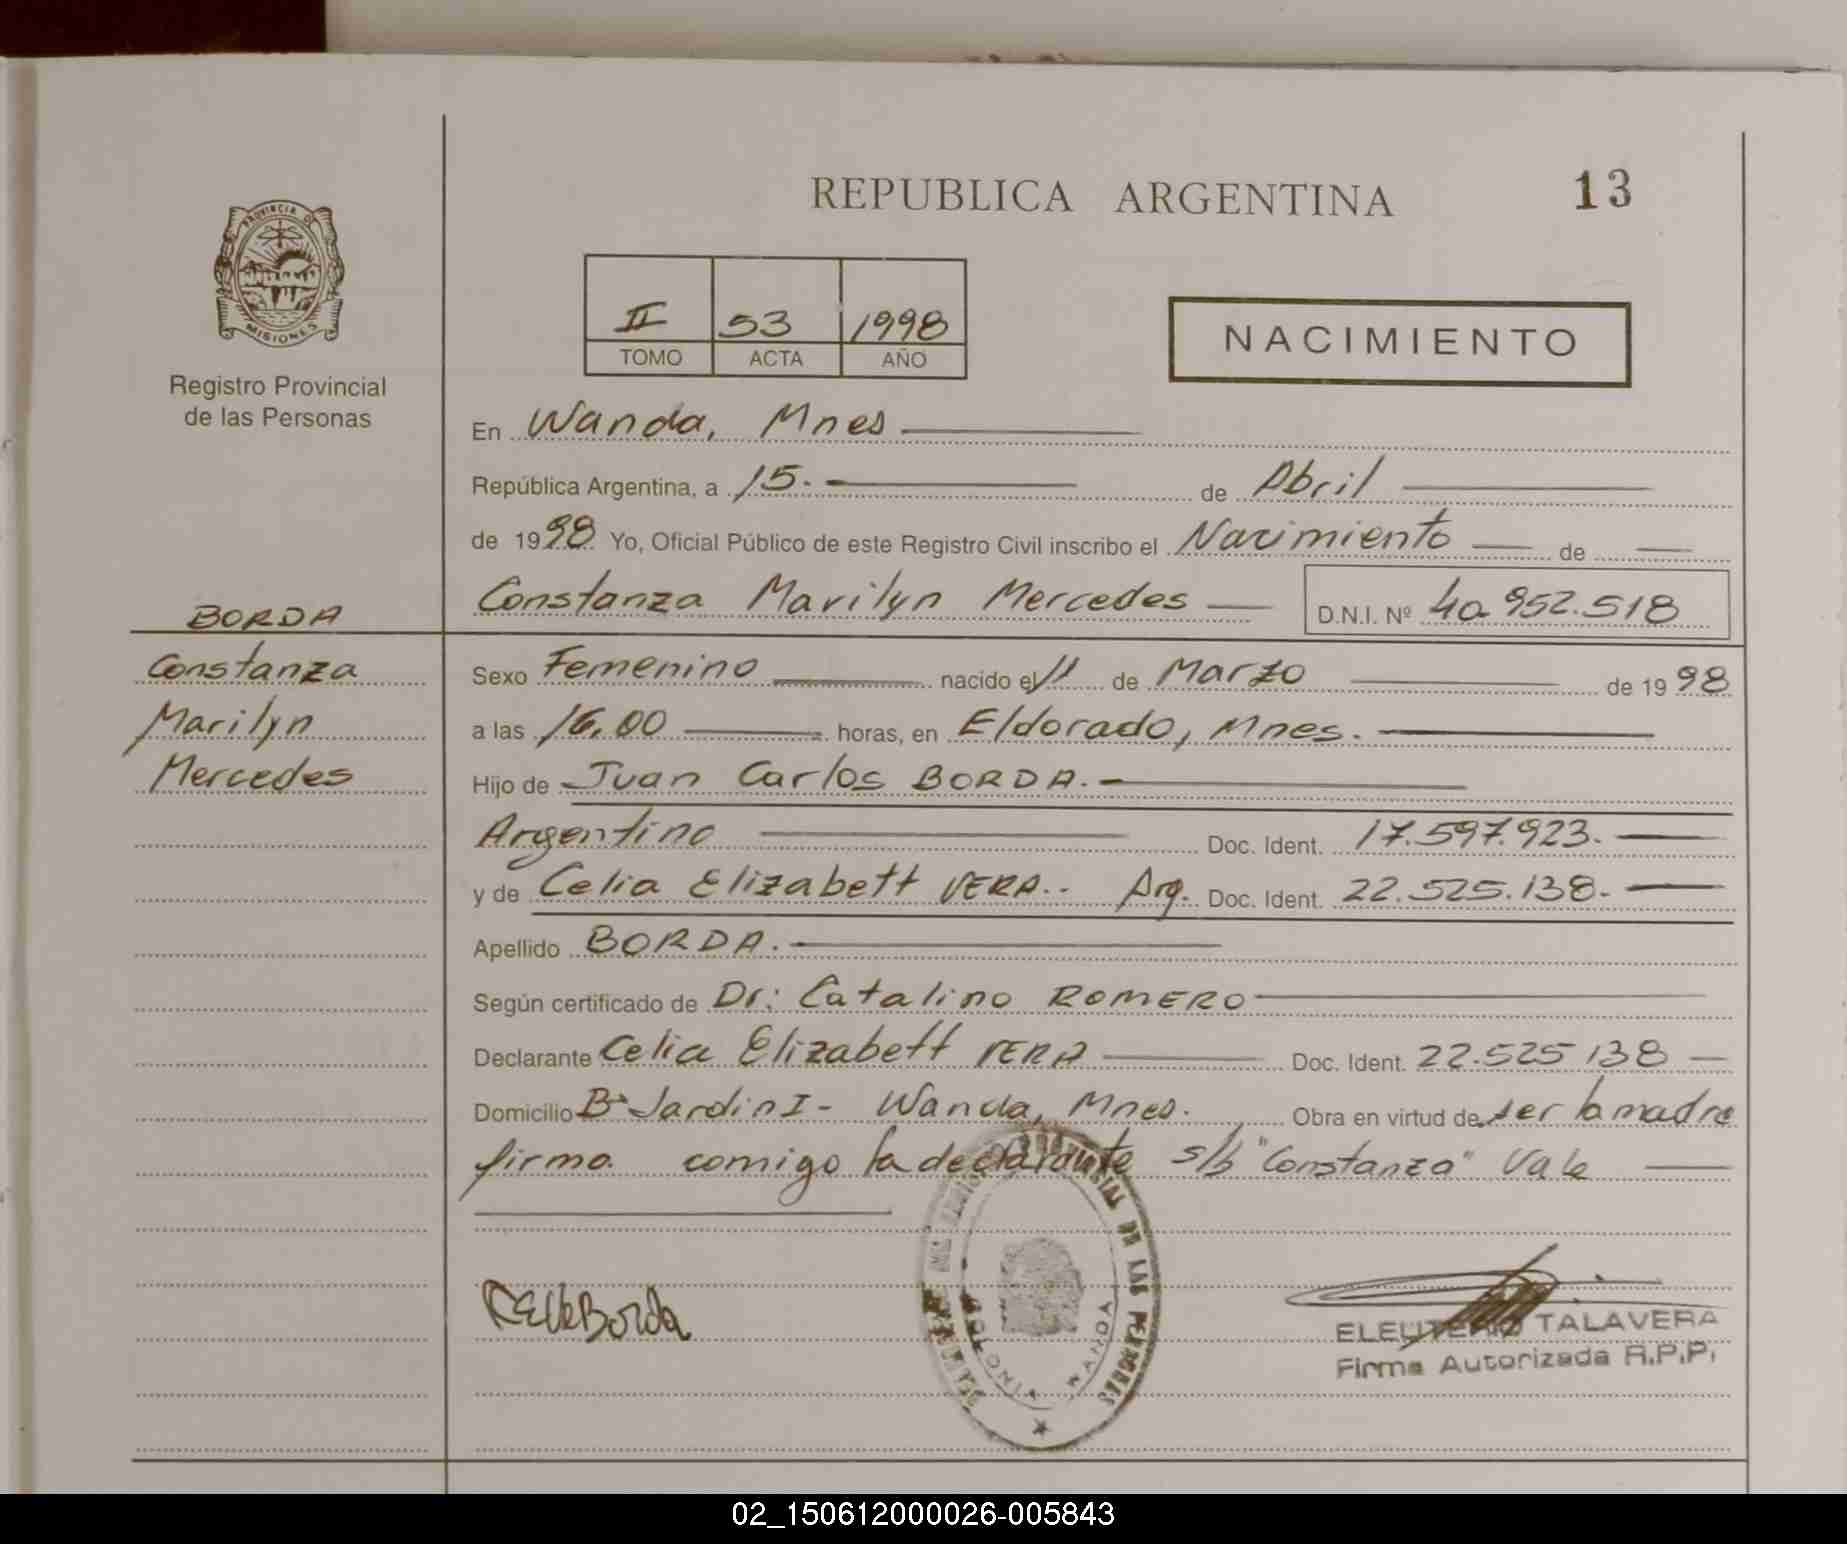 REPUBLICA ARGENTINA
13
PROVINCIA DE
MISIONES
Registro Provincial
de las Personas
II 53 1998
TOMO ACTA AÑO
NACIMIENTO
En Wanda, Mnes
República Argentina, a 15. de Abril
de 1998 Yo, Oficial Público de este Registro Civil inscribo el Nacimiento de
Constanza Marilyn Mercedes D.N.I. Nº 40.952.518
BORDA
Constanza
Marilyn
Mercedes
Sexo Femenino nacido el 11 de Marzo de 1998
a las 16,00 horas, en Eldorado, Mnes.
Hijo de Juan Carlos BORDA.
Argentino Doc. Ident. 17.597.923.
y de Celia Elizabett VERA.. Arg. Doc. Ident. 22.525.138.
Apellido BORDA.
Según certificado de Dr: Catalino ROMERO
Declarante Celia Elizabett VERA Doc. Ident. 22.525 138
Domicilio Bº Jardin I - Wanda, Mnes. Obra en virtud de ser la madre
firma comigo la declarante s/b "Constanza" Vale
DE LAS PERSONAS
COLONIA WANDA
Borda
ELEUTERIO TALAVERA
Firma Autorizada R.P.P.
02_150612000026-005843